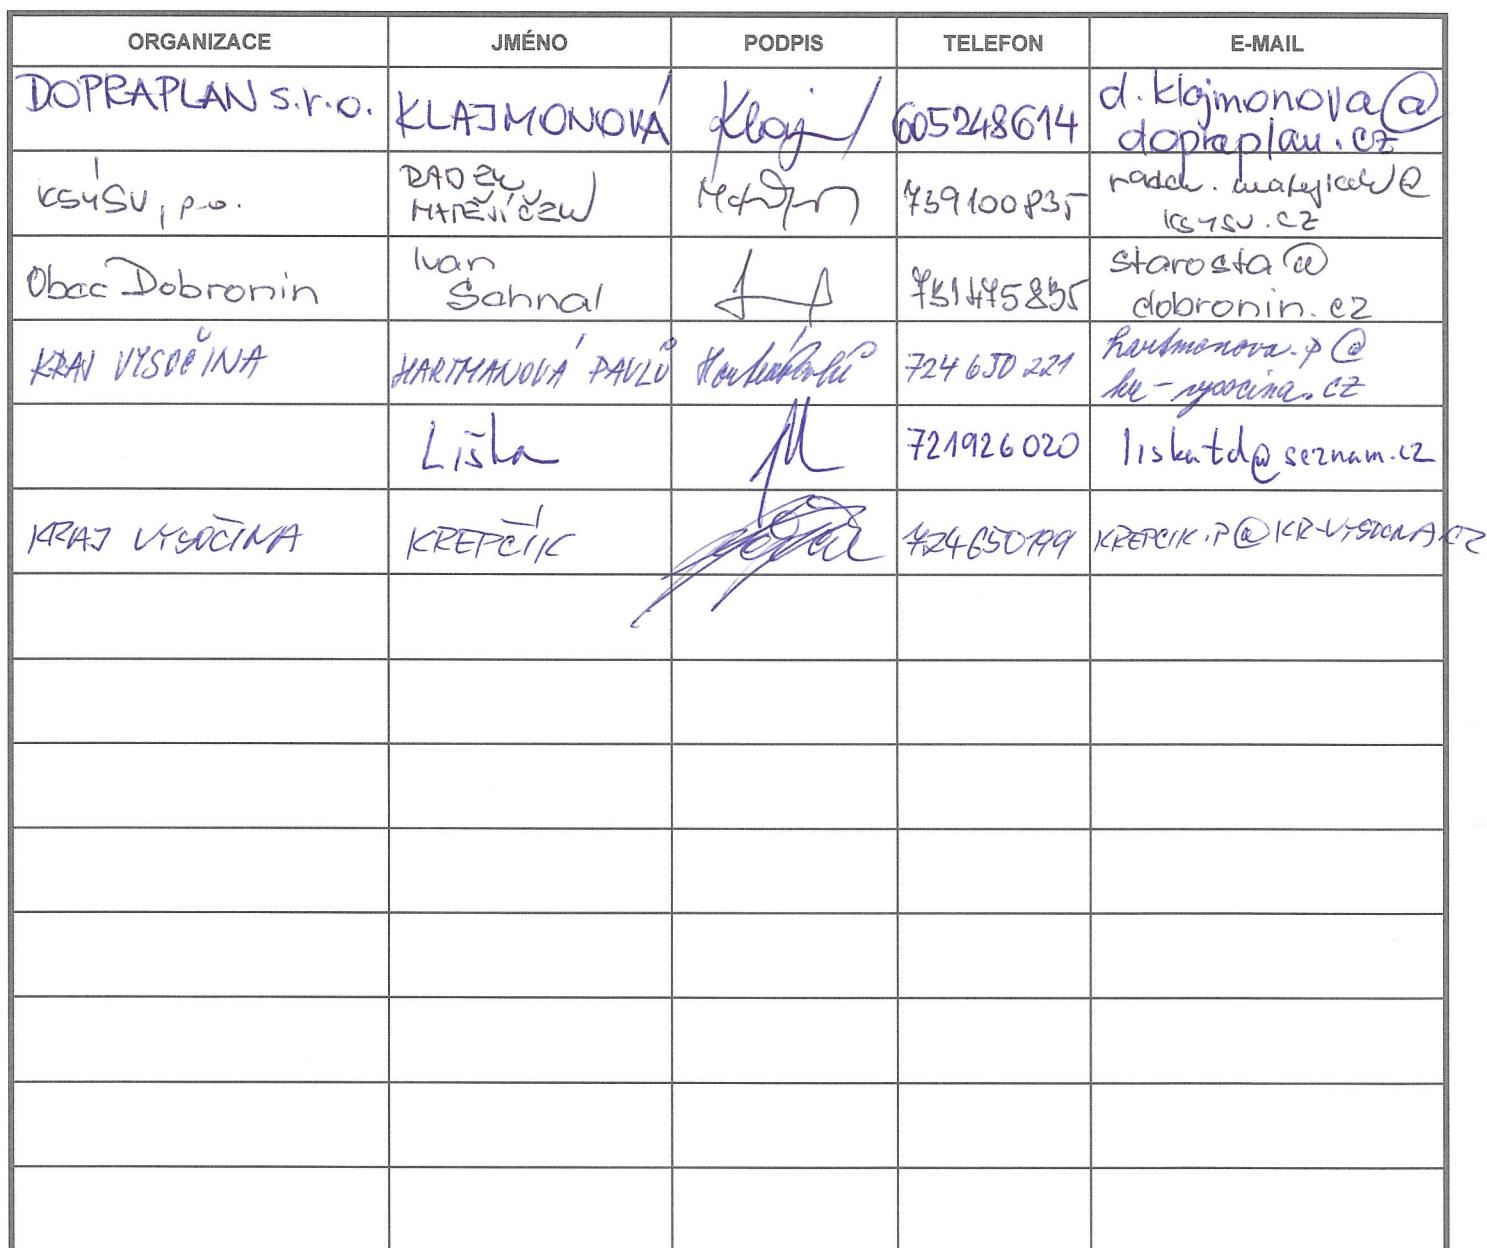 ORGANIZACE JMÉNO PODPIS TELEFON E-MAIL
DOPRAPLAN s.r.o. KLAJMONOVÁ 605248614 d.klajmonova@
dopraplan.cz
KSÚSV, p.o. RADEK 739100835 radek.matejicek@
MATĚJÍČEK ksusv.cz
Obec Dobronín Ivan 731475835 starosta@
Sahnal dobronin.cz
KRAJ VYSOČINA HARTMANOVÁ PAVLŮ 724 650 221 hartmanova.p@
kr-vysocina.cz
Liška 721926020 liskatd@seznam.cz
KRAJ VYSOČINA KREPČÍK 724650199 KREPCIK.P@KR-VYSOCINA.CZ